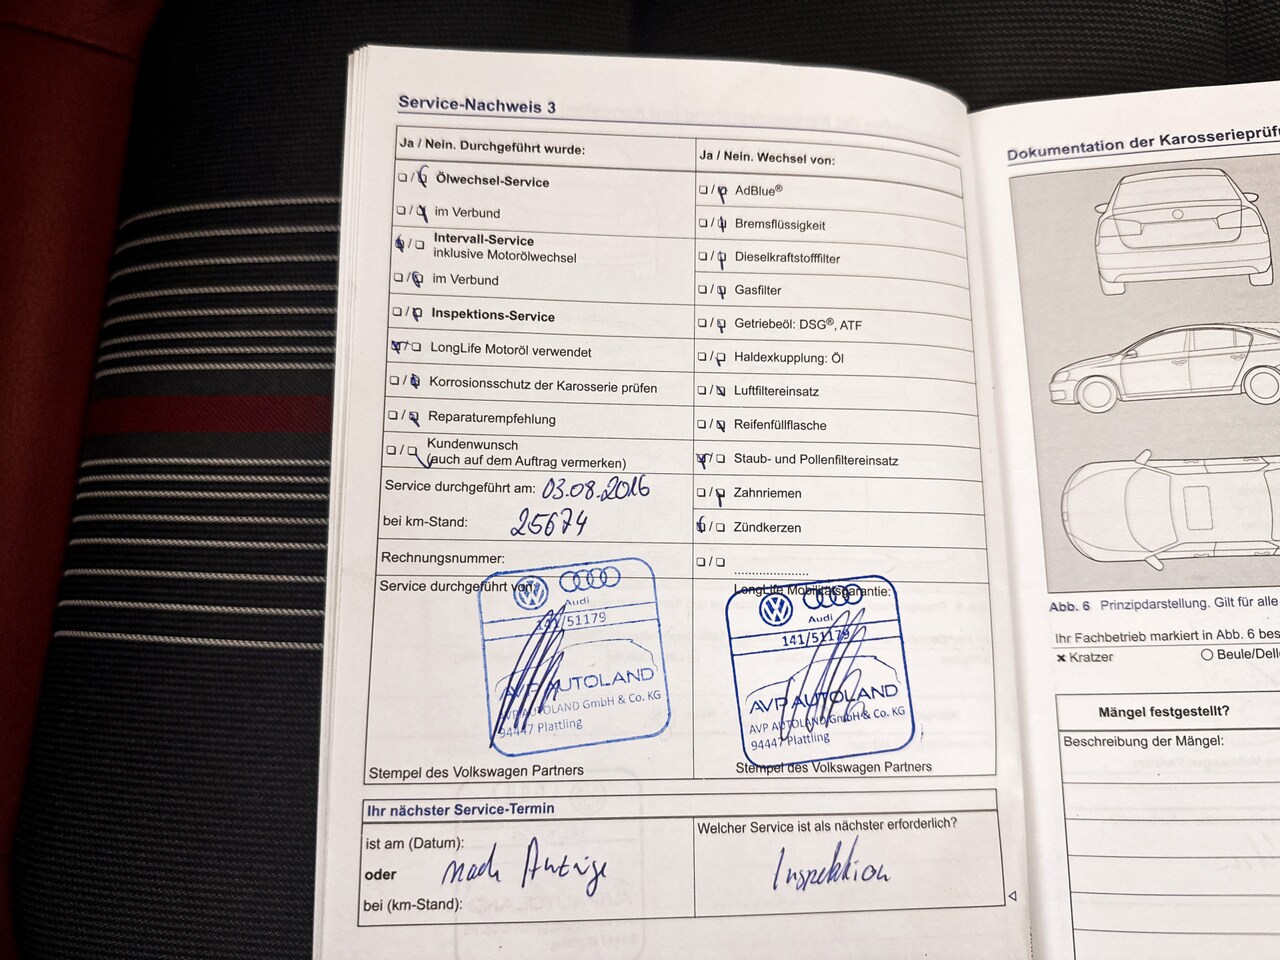 Service-Nachweis 3
Ja / Nein. Durchgeführt wurde:
❏/❏ Ölwechsel-Service
❏/❏ im Verbund
❏/❏ Intervall-Service
inklusive Motorölwechsel
❏/❏ im Verbund
❏/❏ Inspektions-Service
❏/❏ LongLife Motoröl verwendet
❏/❏ Korrosionsschutz der Karosserie prüfen
❏/❏ Reparaturempfehlung
❏/❏ Kundenwunsch
(auch auf dem Auftrag vermerken)
Service durchgeführt am: 03.08.2016
bei km-Stand: 25674
Rechnungsnummer:
Service durchgeführt von:
Audi
141/51179
AVP AUTOLAND
AVP AUTOLAND GmbH & Co. KG
94447 Plattling
Stempel des Volkswagen Partners
Ja / Nein. Wechsel von:
❏/❏ AdBlue®
❏/❏ Bremsflüssigkeit
❏/❏ Dieselkraftstofffilter
❏/❏ Gasfilter
❏/❏ Getriebeöl: DSG®, ATF
❏/❏ Haldexkupplung: Öl
❏/❏ Luftfiltereinsatz
❏/❏ Reifenfüllflasche
❏/❏ Staub- und Pollenfiltereinsatz
❏/❏ Zahnriemen
❏/❏ Zündkerzen
❏/❏ ......................
LongLife Mobilitätsgarantie:
Audi
141/51179
AVP AUTOLAND
AVP AUTOLAND GmbH & Co. KG
94447 Plattling
Stempel des Volkswagen Partners
Ihr nächster Service-Termin
ist am (Datum):
oder nach Anzeige
bei (km-Stand):
Welcher Service ist als nächster erforderlich?
Inspektion
Dokumentation der Karosserieprüf
Abb. 6 Prinzipdarstellung. Gilt für alle
Ihr Fachbetrieb markiert in Abb. 6 bes
× Kratzer ○ Beule/Delle
Mängel festgestellt?
Beschreibung der Mängel: